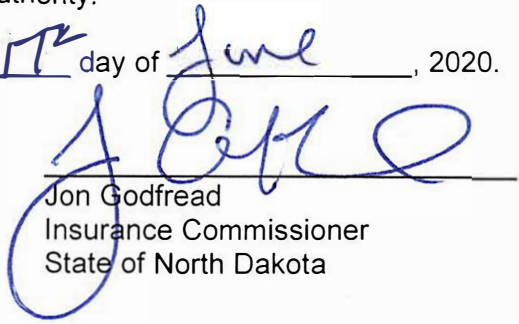 authority.
day of June, 2020.
Jon Godfread
Insurance Commissioner
State of North Dakota